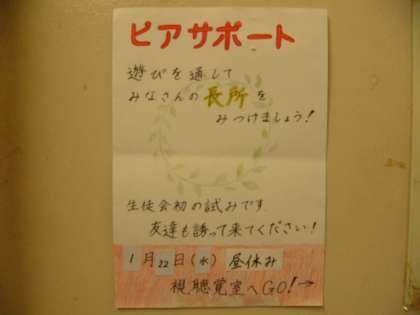 ピアサポート
遊びを通して
みなさんの長所を
みつけましょう!
生徒会初の試みです
友達も誘って来てください!
1月22日(水) 昼休み
視聴覚室へGO!→